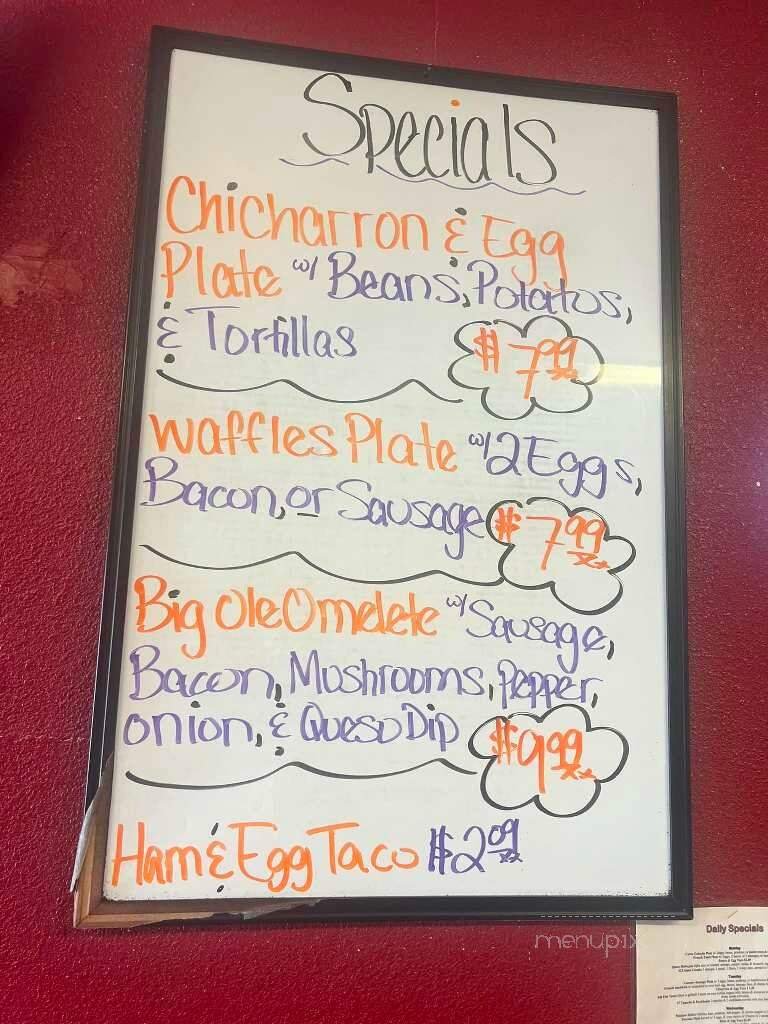 Specials
Chicharron & Egg
Plate w/ Beans, Potatos,
& Tortillas
$7.99
Waffles Plate w/ 2 Eggs,
Bacon, or Sausage
$7.99
Big Ole Omelete w/ Sausage,
Bacon, Mushrooms, Pepper,
onion, & Queso Dip
$9.99
Ham & Egg Taco $2.09
menupix
Daily Specials
Monday
Tuesday
Wednesday